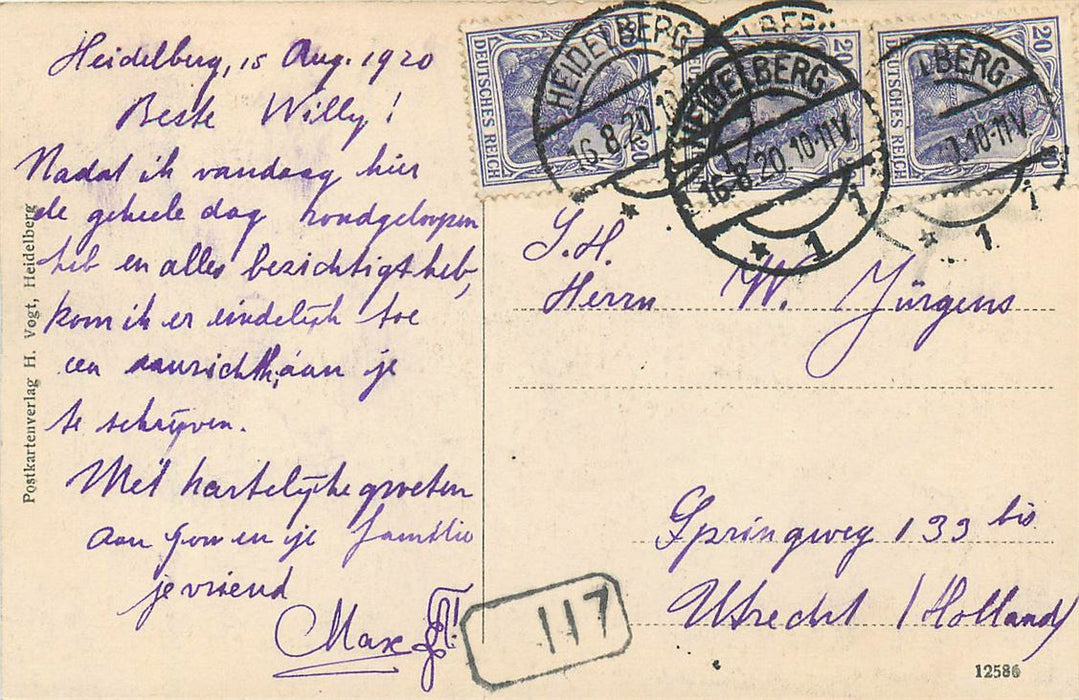 Heidelberg, 15 Aug. 1920
Beste Willy!
Nadat ik vandaag hier
de geheele dag rondgeloopen
heb en alles bezichtigt heb,
kom ik er eindelijk toe
een aansichtk. aan je
te schrijven.
Met hartelijke groeten
aan jou en je familie
je vriend
Max
Postkartenverlag H. Vogt, Heidelberg
DEUTSCHES REICH 20
DEUTSCHES REICH 20
DEUTSCHES REICH 20
HEIDELBERG
16.8.20.
HEIDELBERG
16.8.20.10-11V.
1
LBERG
10-11V.
1
Herrn W. Jürgens
Springweg 139 bis
Utrecht (Holland)
117
12586